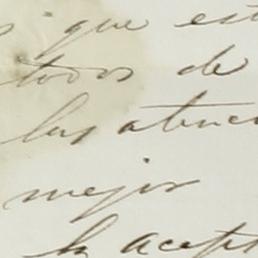 s que est
todos de
las atenci
mejor
la acept